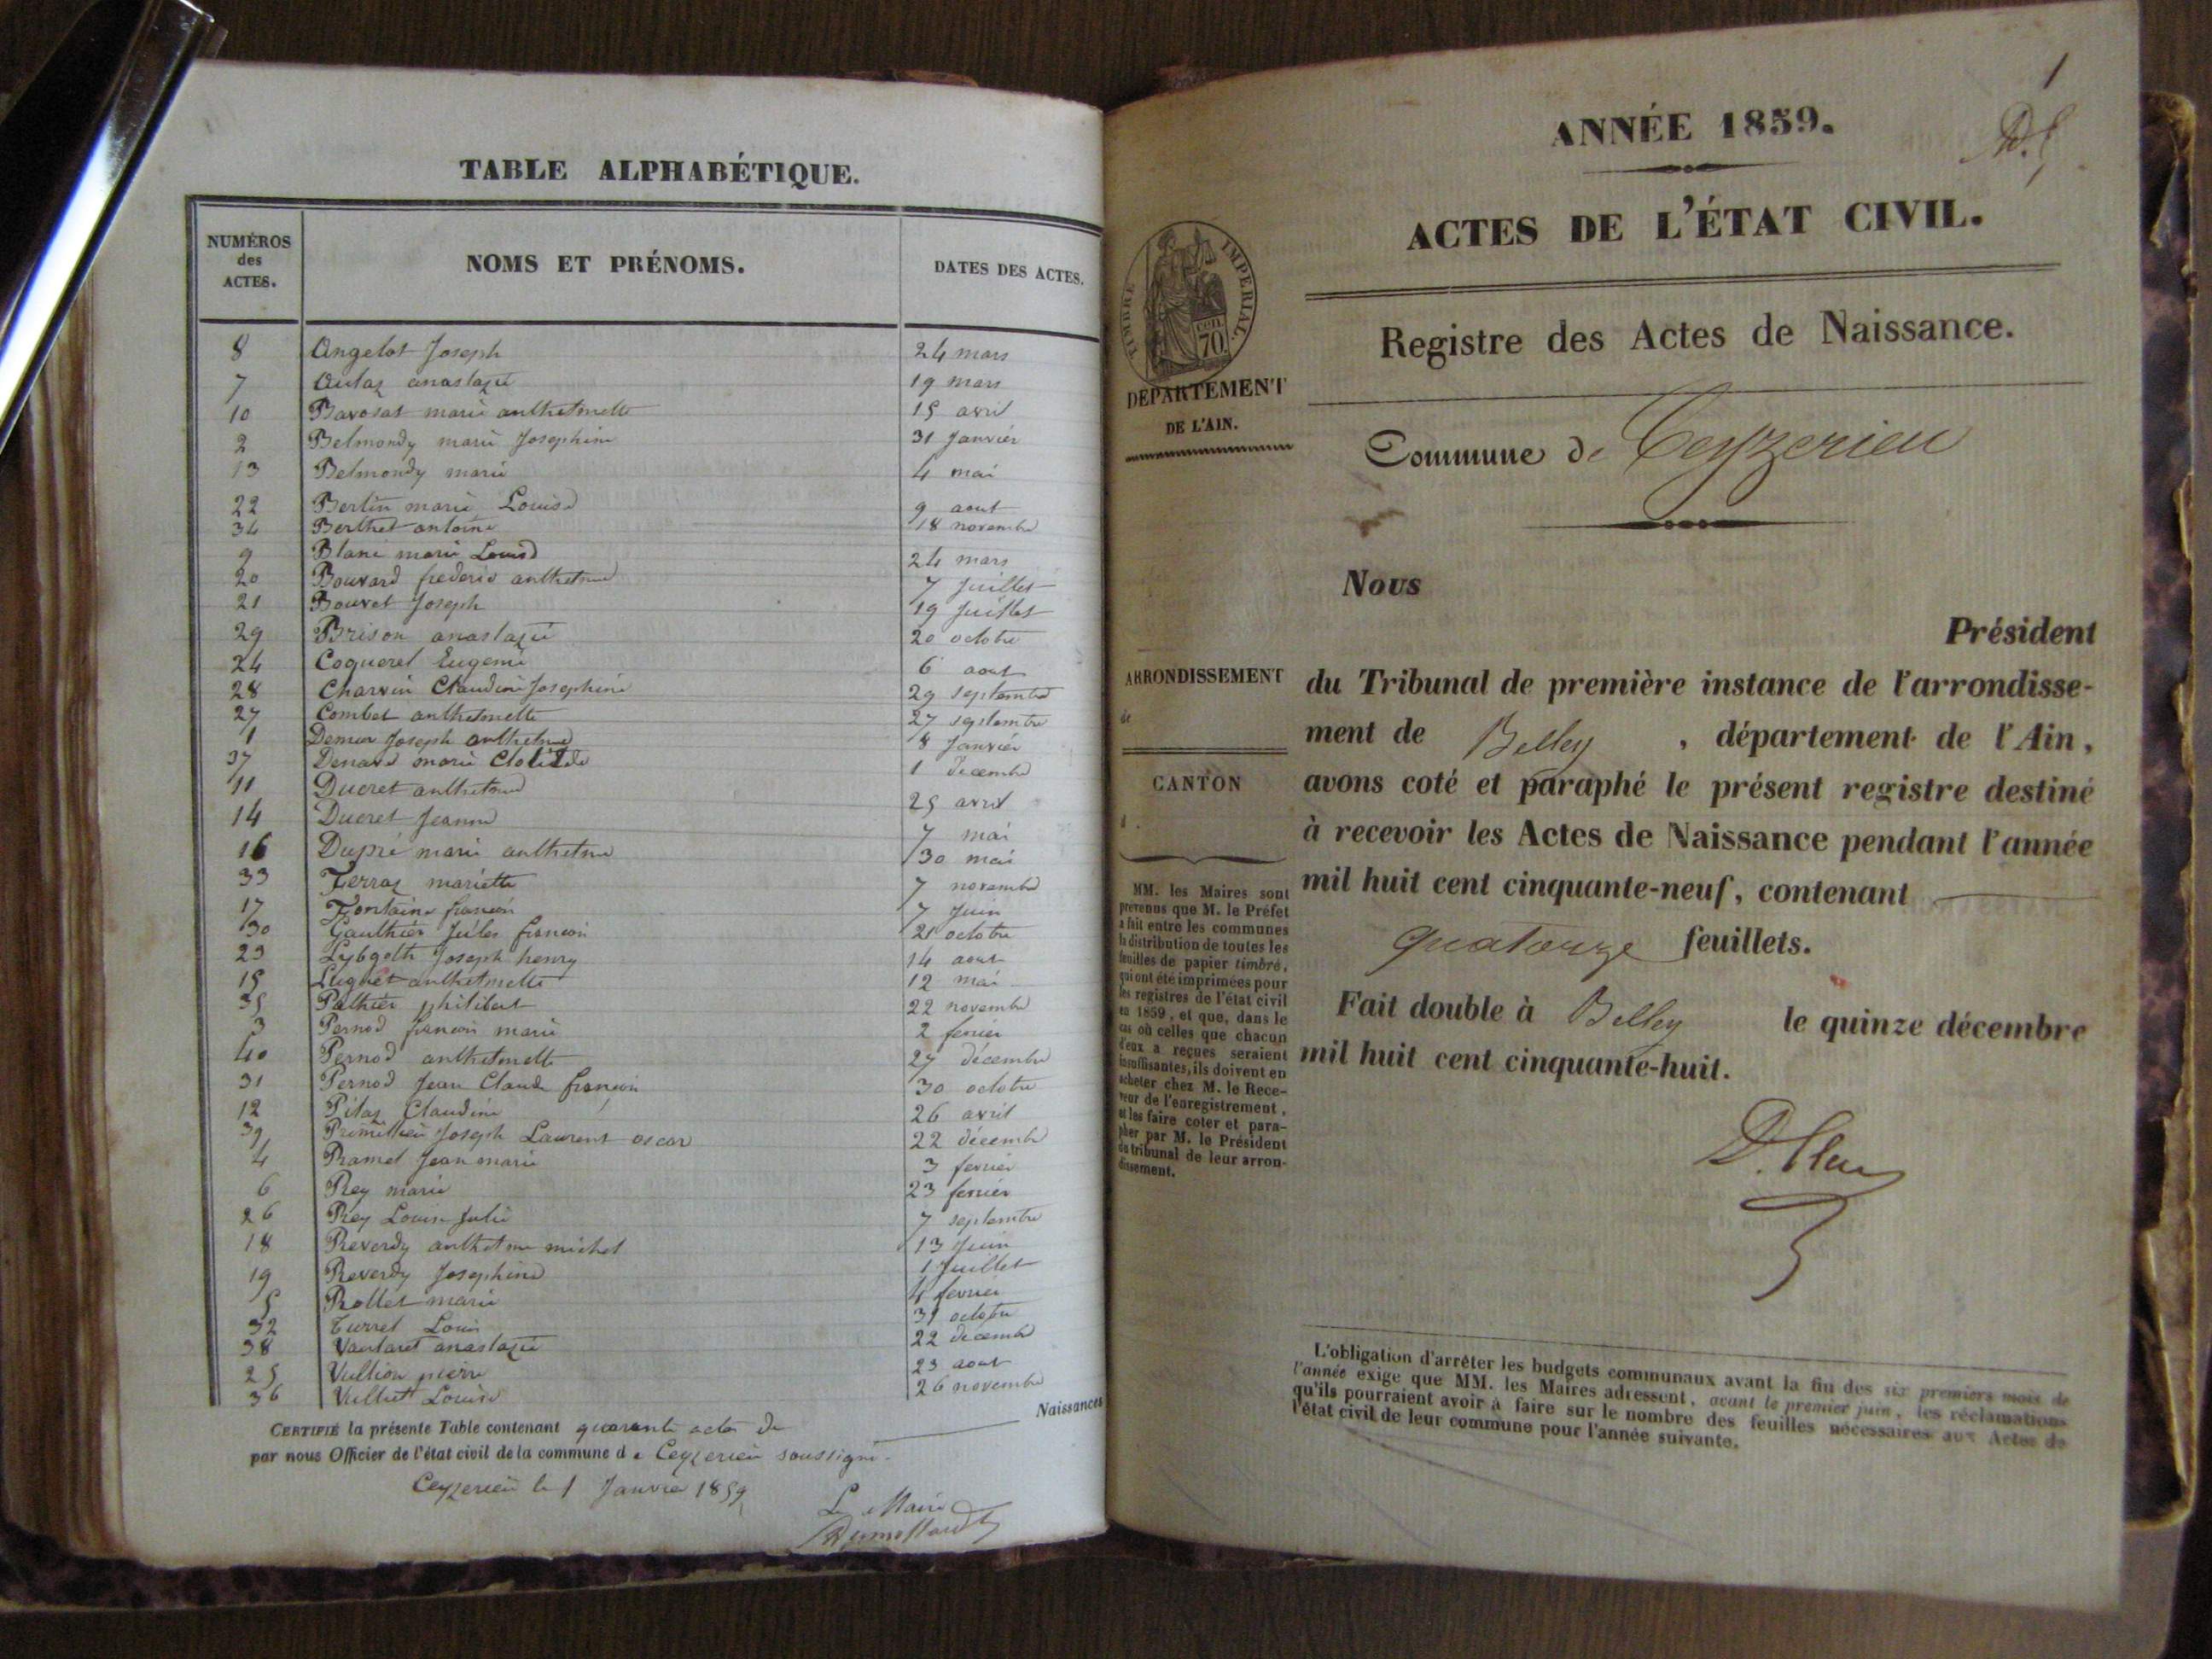 TABLE ALPHABÉTIQUE.
NUMÉROS des ACTES.
NOMS ET PRÉNOMS.
DATES DES ACTES.
8 Angelot Joseph 24 mars
7 Aulaz anastazie 19 mars
10 Bavozat marie anthelmette 15 avril
2 Belmondy marie Josephine 31 Janvier
13 Belmondy marie 4 mai
22 Bertin marie Louise 9 aout
34 Berthet antoine 18 novembre
9 Blanc marie Louise 24 mars
20 Bouvard frederic anthelme 7 Juillet
21 Bouvet Joseph 19 Juillet
29 Brison anastazie 20 octobre
24 Coquerel Eugenie 6 aout
28 Charvin Claudine Josephine 29 septembre
27 Combet anthelmette 27 septembre
1 Joseph anthelme 8 Janvier
37 marie Clotilde 1 decembre
11 Ducret anthelme 25 avril
14 Ducret Jeanne 7 mai
16 Dupré marie anthelme 30 mai
33 Ferraz mariette 7 novembre
17 Fontaine françois 7 Juin
30 Gauthier Jules françois 21 octobre
23 Joseph henry 14 aout
15 Luguet anthelmette 12 mai
35 Pelthier philibert 22 novembre
3 Pernod françois marie 2 fevrier
40 Pernod anthelmette 27 décembre
31 Pernod Jean Claude françois 30 octobre
12 Pilaz Claudine 26 avril
39 Primillieu Joseph Laurent oscar 22 décembre
4 Ramel Jean marie 3 fevrier
6 Rey marie 23 fevrier
26 Rey Louise Julie 7 septembre
18 Reverdy anthelme michel 13 Juin
19 Reverdy Josephine 1 Juillet
5 Rollet marie 4 fevrier
32 Turrel Louis 31 octobre
38 Vautaret anastazie 22 decembre
25 Vullion pierre 23 aout
36 Vulliet Louise 26 novembre
CERTIFIÉ la présente Table contenant quarante actes de Naissances
par nous Officier de l'état civil de la commune de Ceyzerieu soussigné.
Ceyzerieu le 1 Janvier 1859
Le Maire
1
ANNÉE 1859.
ACTES DE L'ÉTAT CIVIL.
TIMBRE IMPERIAL
70 cen.
Registre des Actes de Naissance.
DÉPARTEMENT
DE L'AIN.
Commune de Ceyzerieu
Nous
Président
ARRONDISSEMENT
de
CANTON
d
du Tribunal de première instance de l'arrondisse-
ment de Belley, département de l'Ain,
avons coté et paraphé le présent registre destiné
à recevoir les Actes de Naissance pendant l'année
mil huit cent cinquante-neuf, contenant
quatorze feuillets.
Fait double à Belley le quinze décembre
mil huit cent cinquante-huit.
MM. les Maires sont
prévenus que M. le Préfet
a fait entre les communes
la distribution de toutes les
feuilles de papier timbré,
qui ont été imprimées pour
les registres de l'état civil
en 1859, et que, dans le
cas où celles que chacun
d'eux a reçues seraient
insuffisantes, ils doivent en
acheter chez M. le Rece-
veur de l'enregistrement,
et les faire coter et para-
pher par M. le Président
du tribunal de leur arron-
dissement.
L'obligation d'arrêter les budgets communaux avant la fin des six premiers mois de
l'année exige que MM. les Maires adressent, avant le premier juin, les réclamations
qu'ils pourraient avoir à faire sur le nombre des feuilles nécessaires aux Actes de
l'état civil de leur commune pour l'année suivante.